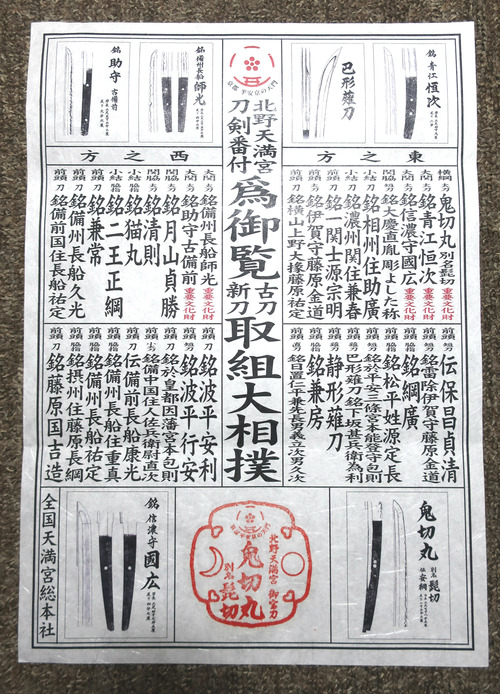 銘 青江 恒次
巴形薙刀
京都 平安京の天門
北野天満宮
刀剣番付
銘 備州長船 師光
銘 助守 古備前
東之方
西之方
鬼切丸 別名髭切 重要文化財
大関 太刀 銘青江恒次 重要文化財
銘信濃守國広 重要文化財
銘大慶直胤彫よした称
銘相州住助廣
銘濃州関住兼春
前頭 刀 銘一関士源宗明
前頭 刀 銘伊賀守藤原金道
前頭 刀 銘横山上野大掾藤原祐定
伝保昌貞清
銘雷除伊賀守藤原金道
銘綱廣
銘松平姓源定長
巴形薙刀 銘下坂甚兵衛為利
静形薙刀
銘兼房
銘日置仁平兼先長男義立次男久次
為御覧
古刀
新刀
取組大相撲
大関 太刀 銘備州長船師光 重要文化財
銘助守古備前 重要文化財
銘月山貞勝
銘清則
銘猫丸
銘二王正綱
前頭 刀 銘兼常
銘備州長船久光
前頭 刀 銘備前国住長船祐定
銘波平安利
銘波平行安
銘於皇都因藩宮本包則
銘備中国住人佐兵衛尉直次
伝備前長船康光
銘備前長船住重真
銘備州長船祐定
銘摂州住藤原長綱
銘藤原国吉造
鬼切丸 別名 髭切 伝 安綱
北野天満宮 御宝刀
鬼切丸
別名 髭切
銘 信濃守 國広
全国天満宮総本社